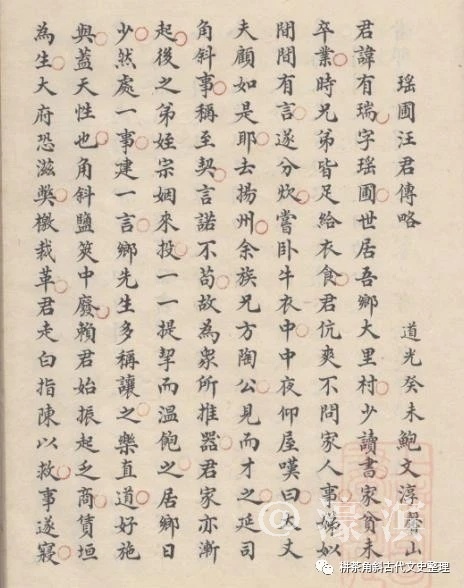 瑶圃汪君傳略　道光癸未鮑文淳馨山
君諱有瑞字瑶圃世居吾鄉大里村少讀書家貧未
卒業時兄弟皆足給衣食君伉爽不問家人事娣姒
間間有言遂分炊嘗卧牛衣中中夜仰屋嘆曰大丈
夫顧如是耶去揚州余族兄方陶公見而才之延司
角斜事稱至契言諾不苟故為衆所推器君家亦漸
起後之弟姪宗姻來投一一提挈而溫飽之居鄉日
少然處一事建一言鄉先生多稱讓之樂直道好施
與蓋天性也角斜鹽筴中廢賴君始振起乏商賃垣
為生大府恐滋獘檄裁革君走白指陳以救事遂寢
@濠濱
栟茶角斜古代文史整理